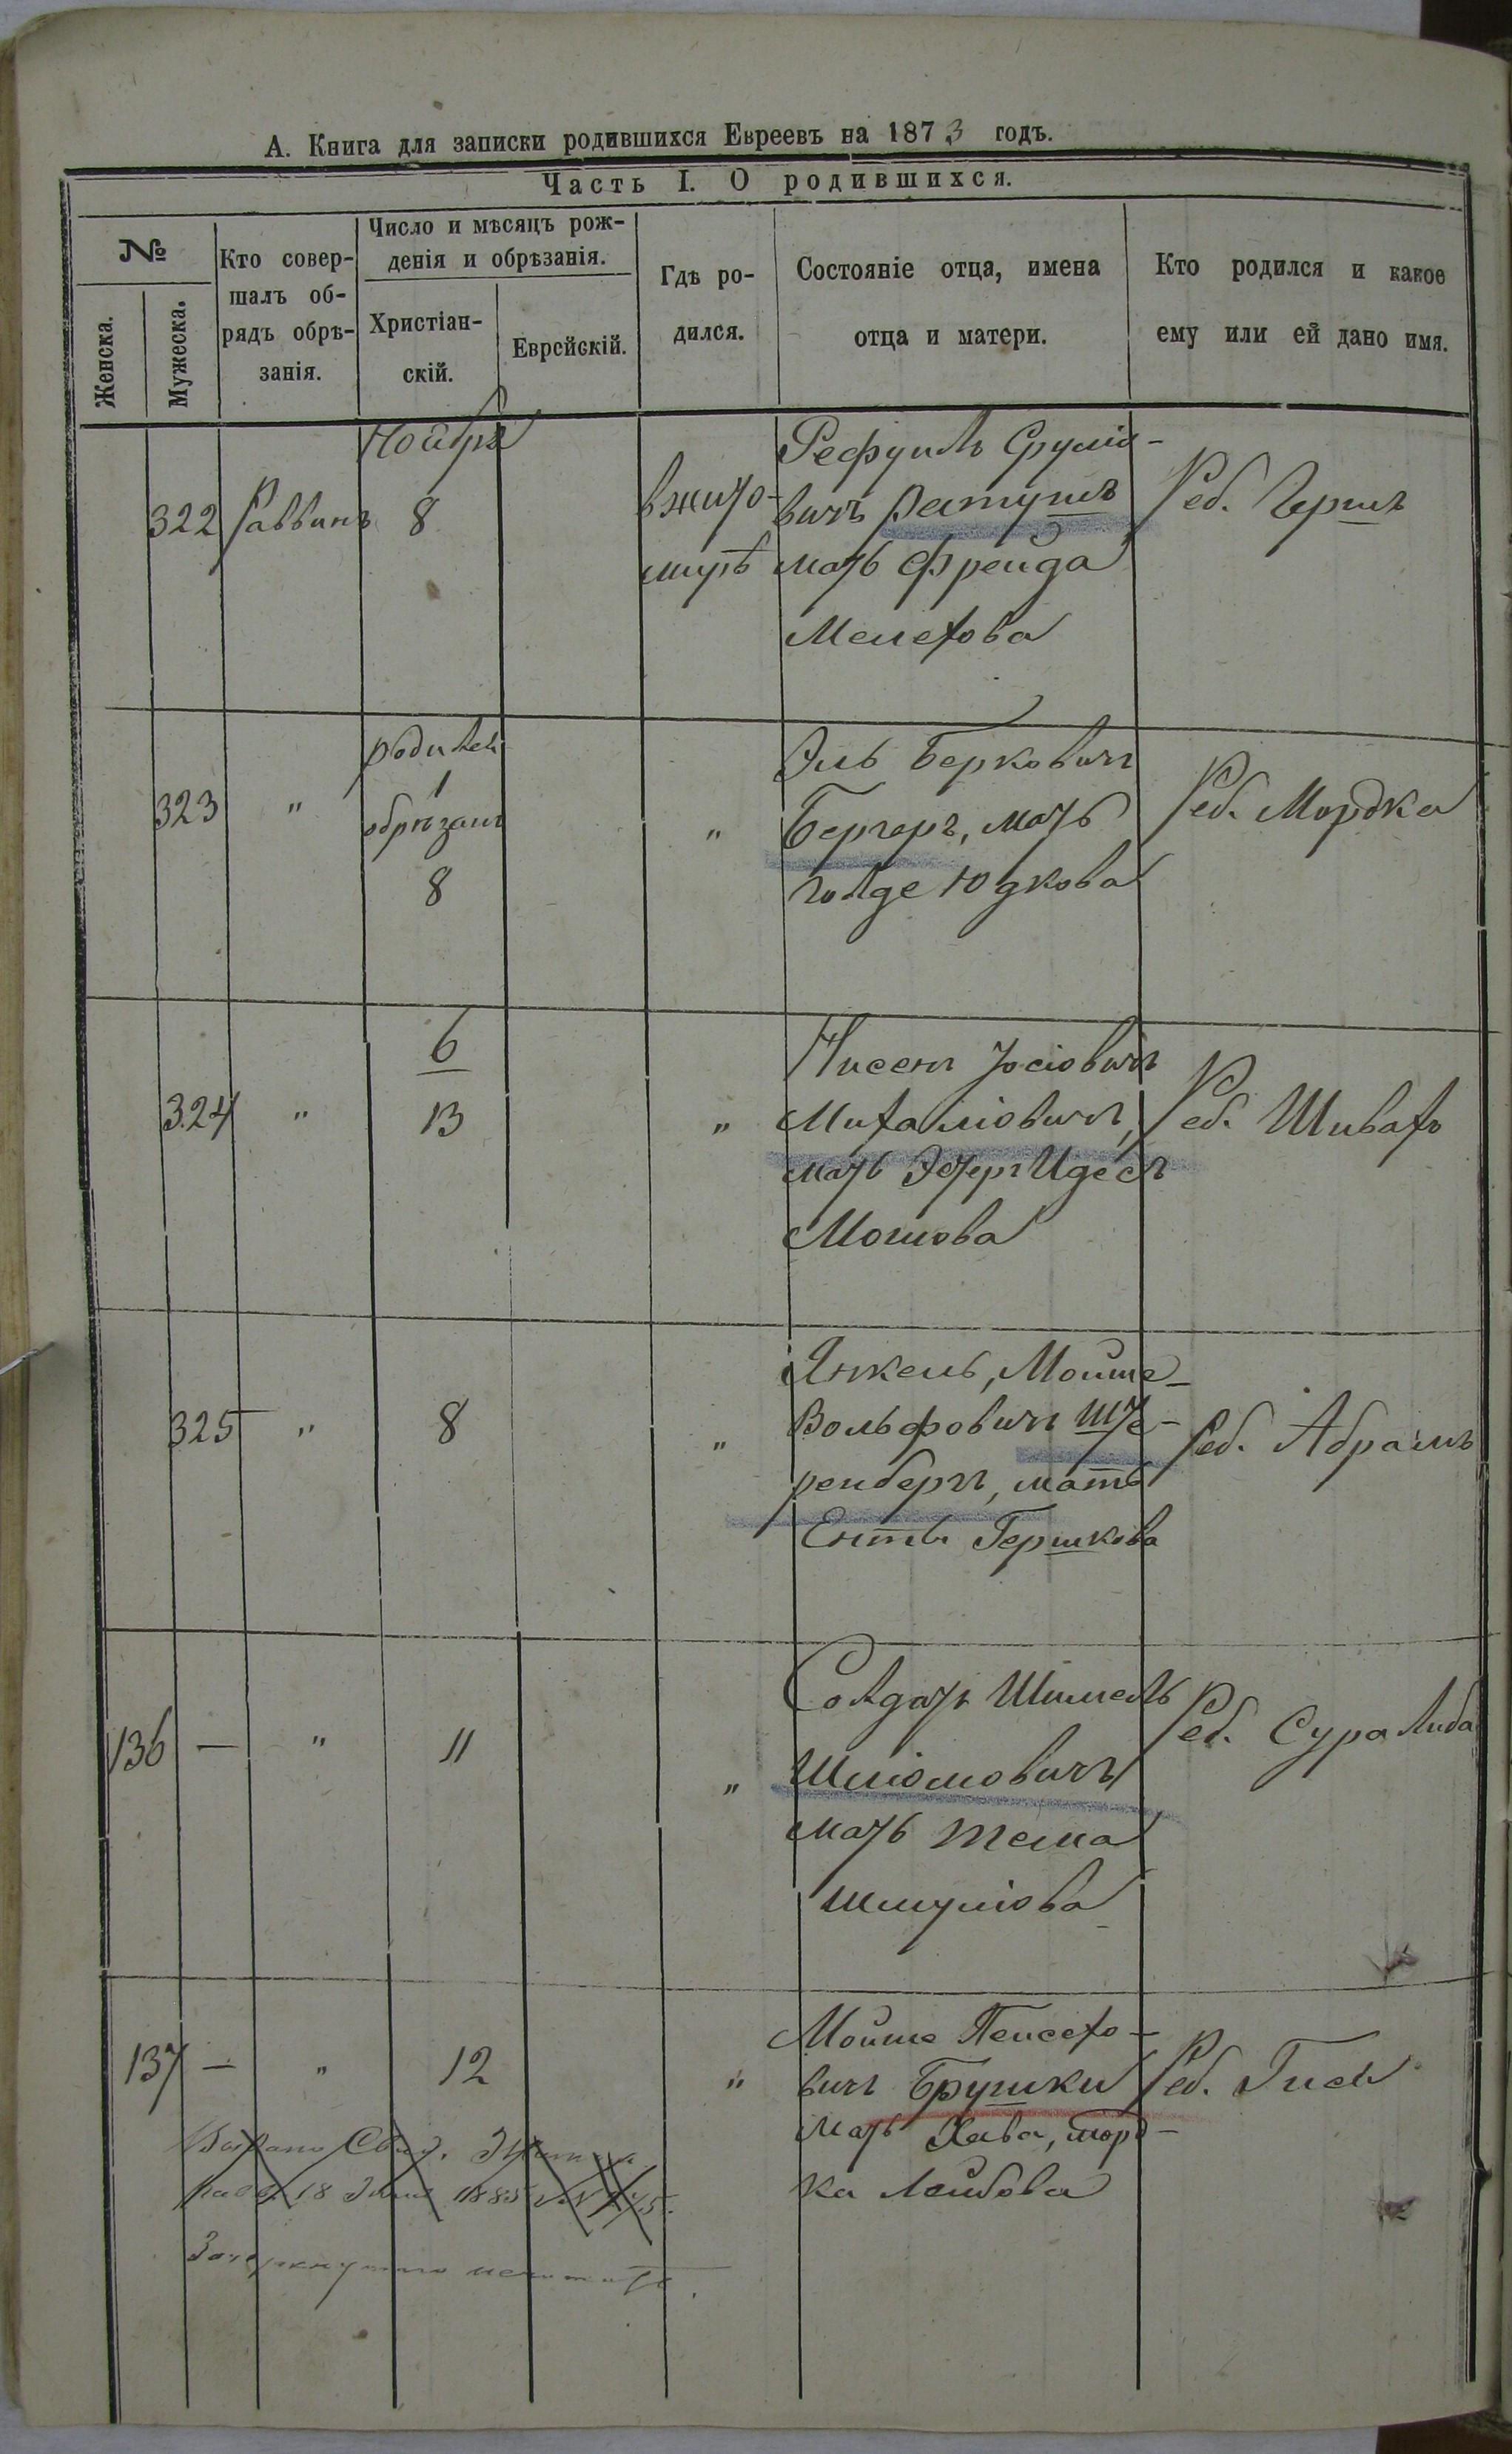 А. Книга для записки родившихся Евреевъ на 1873 годъ.
Часть I. О родившихся.
№
Женска.
Мужеска.
Кто совер-
шалъ об-
рядъ обрѣ-
занія.
Число и мѣсяцъ рож-
денія и обрѣзанія.
Христіан-
скій.
Еврейскій.
Гдѣ ро-
дился.
Состояніе отца, имена
отца и матери.
Кто родился и какое
ему или ей дано имя.
Ноября
322 Раввинъ 8
в жито-
мирѣ
Рефуиль Сруліо-
вичъ Ратушъ
мать Фрейда
Мелехова
Реб. Гершъ
323 "
родился
1
обрѣзанъ
8
"
Эль Берковичъ
Бергеръ, мать
голде Юдкова
Реб. Мордка
324 "
6
13
"
Нисенъ Іосіовичъ
Михаліовичъ,
мать Эстеръ Идесъ
Мошова
Реб. Шивахъ
325 " 8 "
Янкель, Мойше-
Вольфовичъ Ште-
ренбергъ, мать
Ента Гершкова
Реб. Абрамъ
136 — " 11 "
Солдатъ Шимель
Шліомовичъ
мать Тема
Шмуліова
Реб. Сура Либа
137 — " 12 "
Мойше Пейсахо-
вичъ Брушки
мать Хава, Мор-
ка Лейбова
Реб. Гися
18 1885
Зачеркнутого не читать.